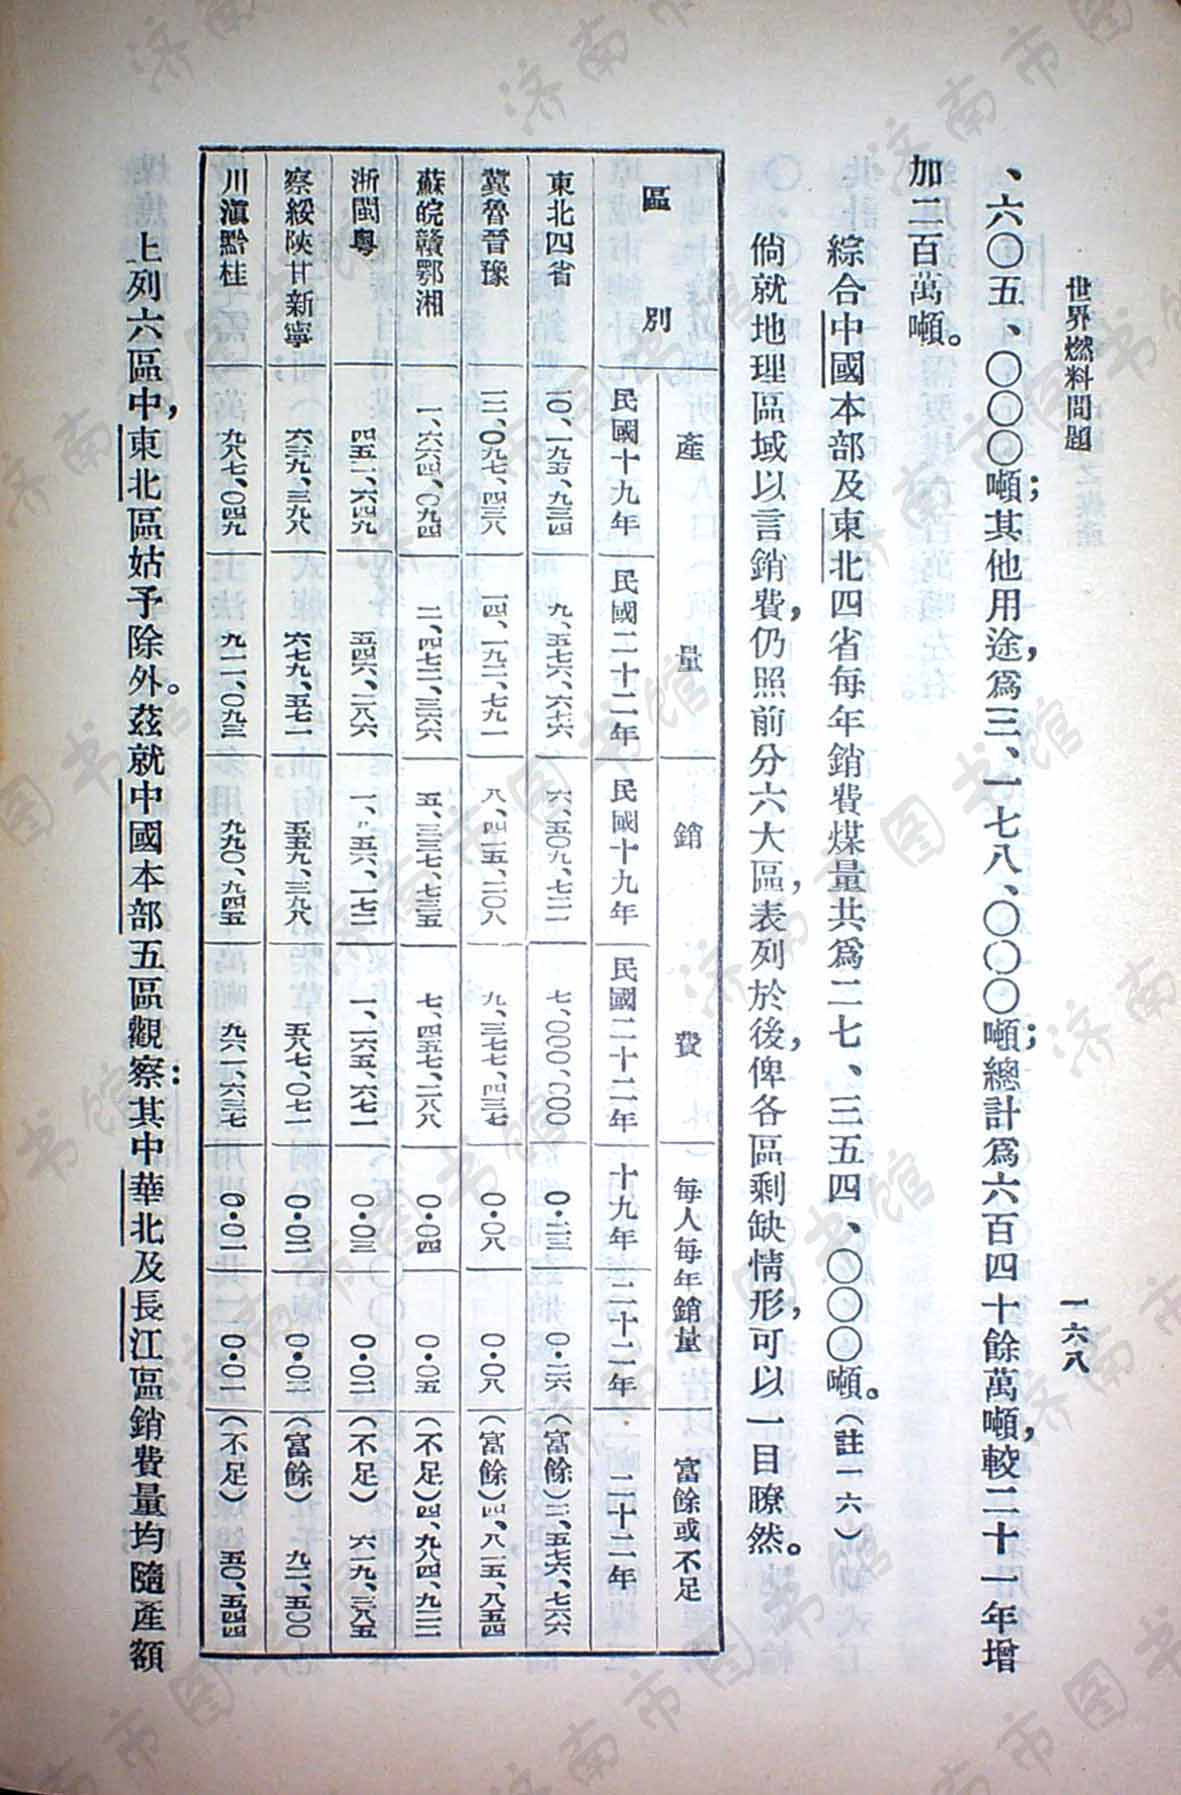 世界燃料問題
一六八
、六〇五、〇〇〇噸；其他用途，爲三、一七八、〇〇〇噸；總計爲六百四十餘萬噸，較二十一年增
加二百萬噸。
綜合中國本部及東北四省每年銷費煤量共爲二七、三五四、〇〇〇噸。（註一六）
倘就地理區域以言銷費，仍照前分六大區，表列於後，俾各區剩缺情形，可以一目瞭然。
區別 產量 銷費 每人每年銷量 富餘或不足
民國十九年 民國二十二年 民國十九年 民國二十二年 十九年 二十二年 二十二年
東北四省 一〇、一九五、九三四 九、五七六、六七六 六、五〇九、七二一 七、〇〇〇、〇〇〇 〇・二三 〇・二六 （富餘）三、五七六、七六六
冀魯晉豫 一二、〇九七、四三八 一四、一九二、七九一 八、四一五、二〇八 九、三七七、四三七 〇・〇八 〇・〇八 （富餘）四、八一五、八五四
蘇皖贛鄂湘 一、六六四、〇九四 二、四七二、三六六 五、三三七、七三五 七、四五七、二八八 〇・〇四 〇・〇五 （不足）四、九八四、九二二
浙閩粵 四五二、六四九 五四六、二八六 五六、一七二 一、一六五、六七一 〇・〇三 〇・〇二 （不足）六一九、三八五
察綏陝甘新寧 六三九、三九八 六七九、五七一 五五九、三九八 五八七、〇七一 〇・〇二 〇・〇二 （富餘）九二、五〇〇
川滇黔桂 九八七、〇四九 九一一、〇九三 九九〇、九四五 九六一、六三七 〇・〇一 〇・〇一 （不足）五〇、五四四
上列六區中，東北區姑予除外。茲就中國本部五區觀察：其中華北及長江區銷費量均隨產額
济南市图书馆